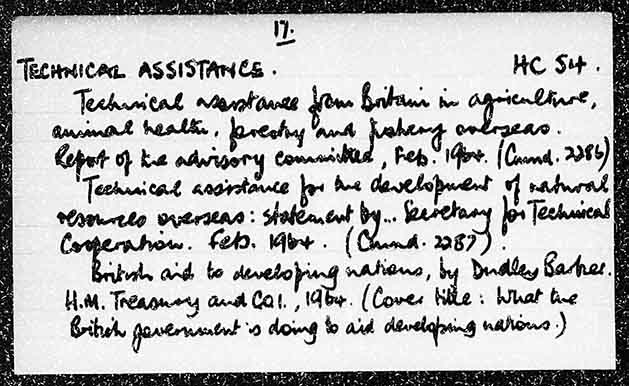 17.
TECHNICAL ASSISTANCE. HC 54.
Technical assistance from Britain in agriculture,
animal health, forestry and fishery overseas.
Report of the advisory committee, Feb. 1964. (Cmnd. 2286)
Technical assistance for the development of natural
resources overseas: statement by... Secretary for Technical
Cooperation. Feb. 1964. (Cmnd. 2287).
British aid to developing nations, by Dudley Barker.
H.M. Treasury and COI., 1964. (Cover title: What the
British government is doing to aid developing nations.)